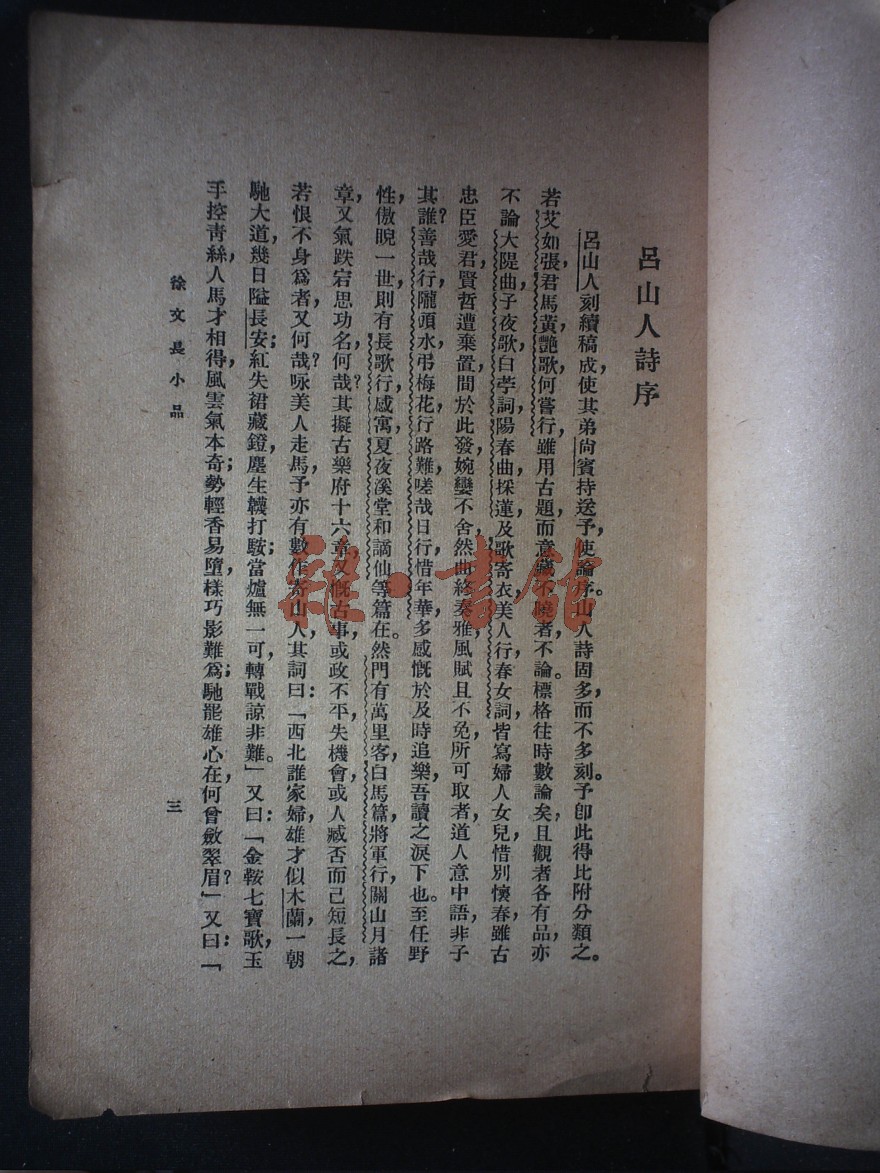 呂山人詩序
呂山人刻續稿成，使其弟尙賓持送予，使論序。山人詩固多，而不多刻。予卽此得比附分類之。
若艾如張君馬黃艷歌何嘗行，雖用古題而意藏不曉者，不論。標格往時數論矣，且觀者各有品，亦
不論。大隄曲子夜歌白苧詞陽春曲採蓮及歌寄衣美人行春女詞，皆寫婦人女兒，惜別懷春，雖古
忠臣愛君，賢哲遭棄置，間於此發婉孌不舍，然曲終奏雅，風賦且不免，所可取者，道人意中語，非子
其誰？善哉行隴頭水弔梅花行路難嗟哉日行惜年華，多感慨於及時追樂，吾讀之淚下也。至任野
性，傲睨一世，則有長歌行感寓夏夜溪堂和謫仙等篇在。然門有萬里客白馬篇，將軍行，關山月諸
章，又氣跌宕思功名，何哉？其擬古樂府十六章，又慨古事，或政不平失機會，或人臧否而己短長之，
若恨不身爲者，又何哉？咏美人走馬，予亦有數作寄山人，其詞曰：「西北誰家婦，雄才似木蘭，一朝
馳大道，幾日隘長安；紅失裙藏鐙，塵生韈打鞍；當爐無一可，轉戰諒非難。」又曰：「金鞍七寶歌，玉
手控靑絲，人馬才相得，風雲氣本奇；勢輕香易墮，樣巧影難爲；馳罷雄心在，何曾斂翠眉？」又曰：「
徐文長小品
三
雜·書館